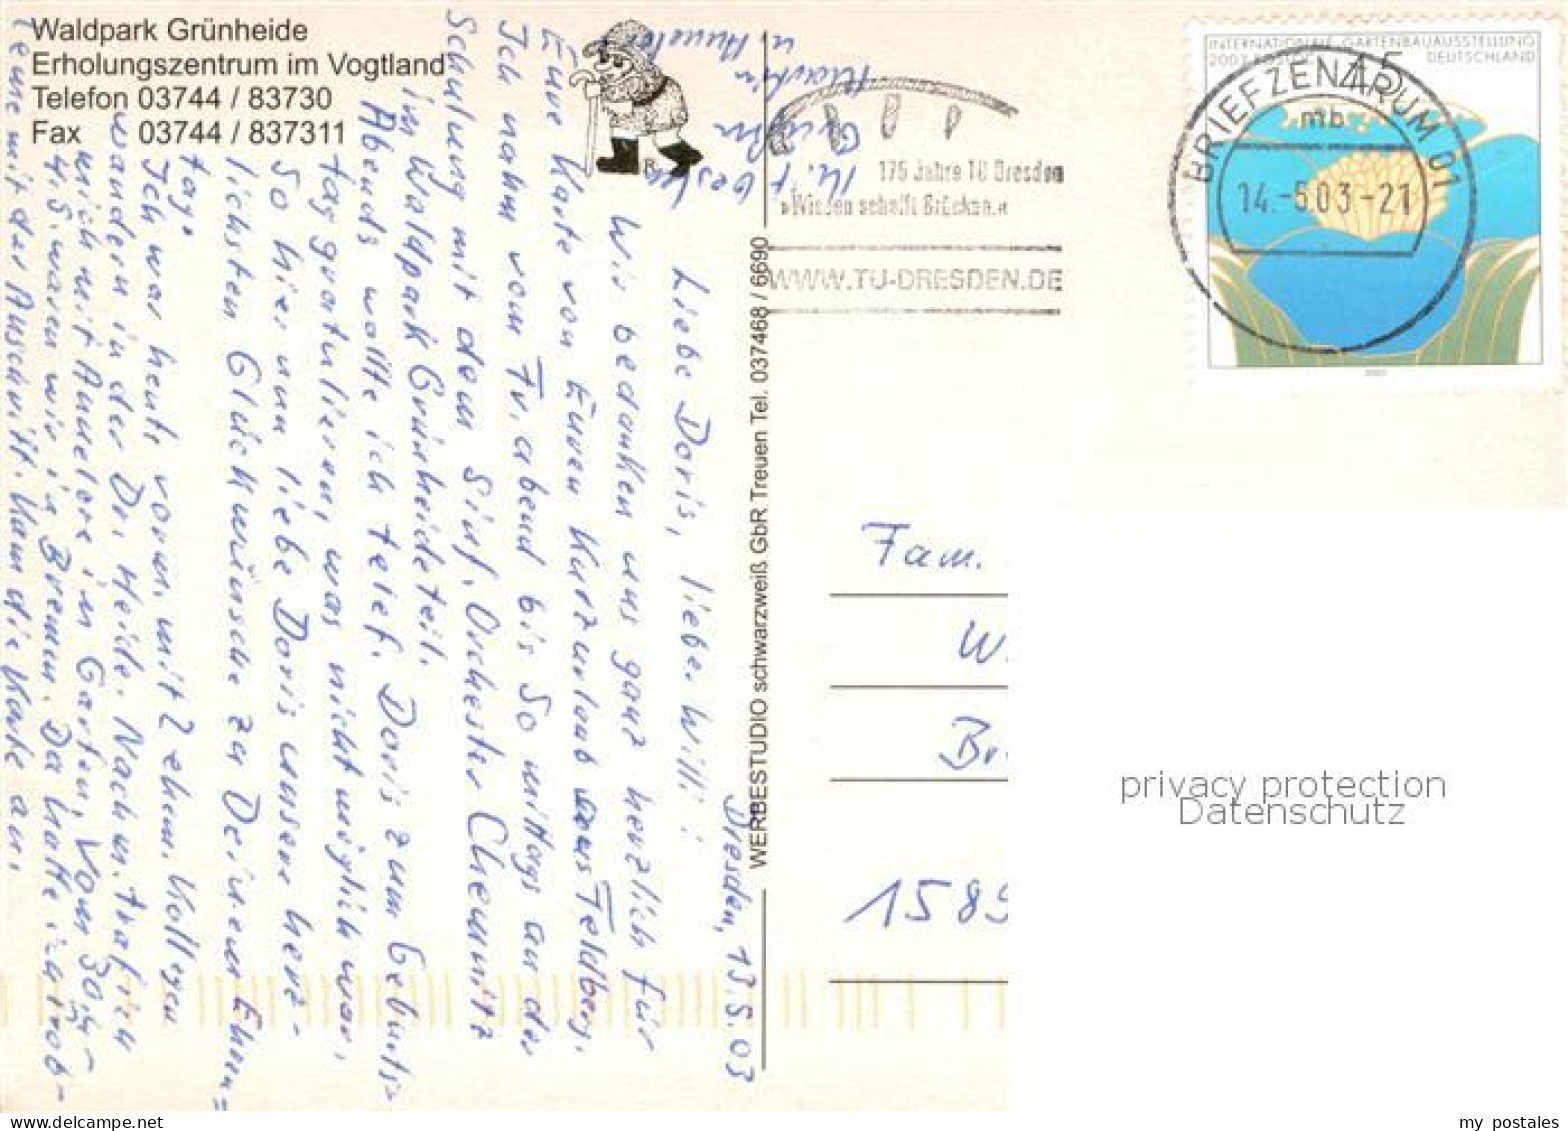 Waldpark Grünheide
Erholungszentrum im Vogtland
Telefon 03744 / 83730
Fax 03744 / 837311
R
WERBESTUDIO schwarzweiß GbR Treuen Tel. 037468 / 6690
Dresden, 13.5.03
Liebe Doris, lieber Willi!
Wir bedanken uns ganz herzlich für
Eure Karte von Euren Kurzurlaub aus Feldberg.
Ich nahm vom Fr. abend bis So mittags an der
Schulung mit dem Sinf. Orchester Chemnitz
im Waldpark Grünheide teil.
Abends wollte ich telef. Doris zum Geburts=
tag gratulieren, was nicht möglich war.
So hier nun liebe Doris unsere herz-
lichsten Glückwünsche zu Deinem Ehren=
tag.
Ich war heute vorm. mit 2 ehem. Kollegen
wandern in der Dr. Heide. Nachm. traf ich
mich mit Annelore im Garten. Vom 30.4.-
4.5. waren wir in Bremen. Da hatte
mit der Anschrift. Kam die Karte an.
INTERNATIONALE GARTENBAUAUSSTELLUNG
2003 ROSTOCK DEUTSCHLAND
45
BRIEFZENTRUM 01
mb
14.-5.03-21
175 Jahre TU Dresden
»Wissen schafft Brücken.«
WWW.TU-DRESDEN.DE
Fam.
W
Br
1589
privacy protection
Datenschutz
my postales